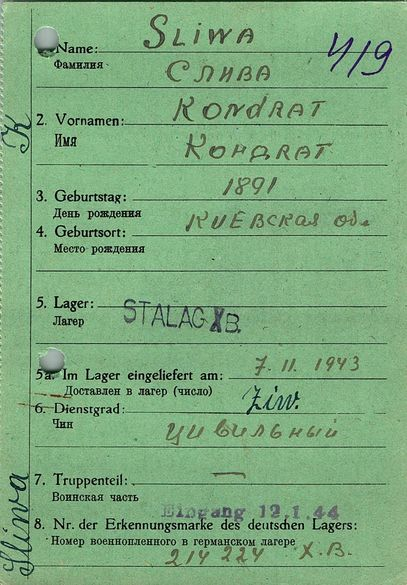 Name: SLIWA
Фамилия СЛИВА
4/9
2. Vornamen: KONDRAT
Имя КОНДРАТ
K
3. Geburtstag: 1891
День рождения
4. Geburtsort: КИЕВСКАЯ ОБ.
Место рождения
5. Lager: STALAG XB.
Лагер
5a. Im Lager eingeliefert am: 7. 11. 1943
Доставлен в лагер (число)
6. Dienstgrad: Ziv.
Чин ЦИВИЛЬНЫЙ
7. Truppenteil: —
Воинская часть
Eingang 12.1.44
8. Nr. der Erkennungsmarke des deutschen Lagers:
Номер военнопленного в германском лагере
214 224 X.B.
Sliwa